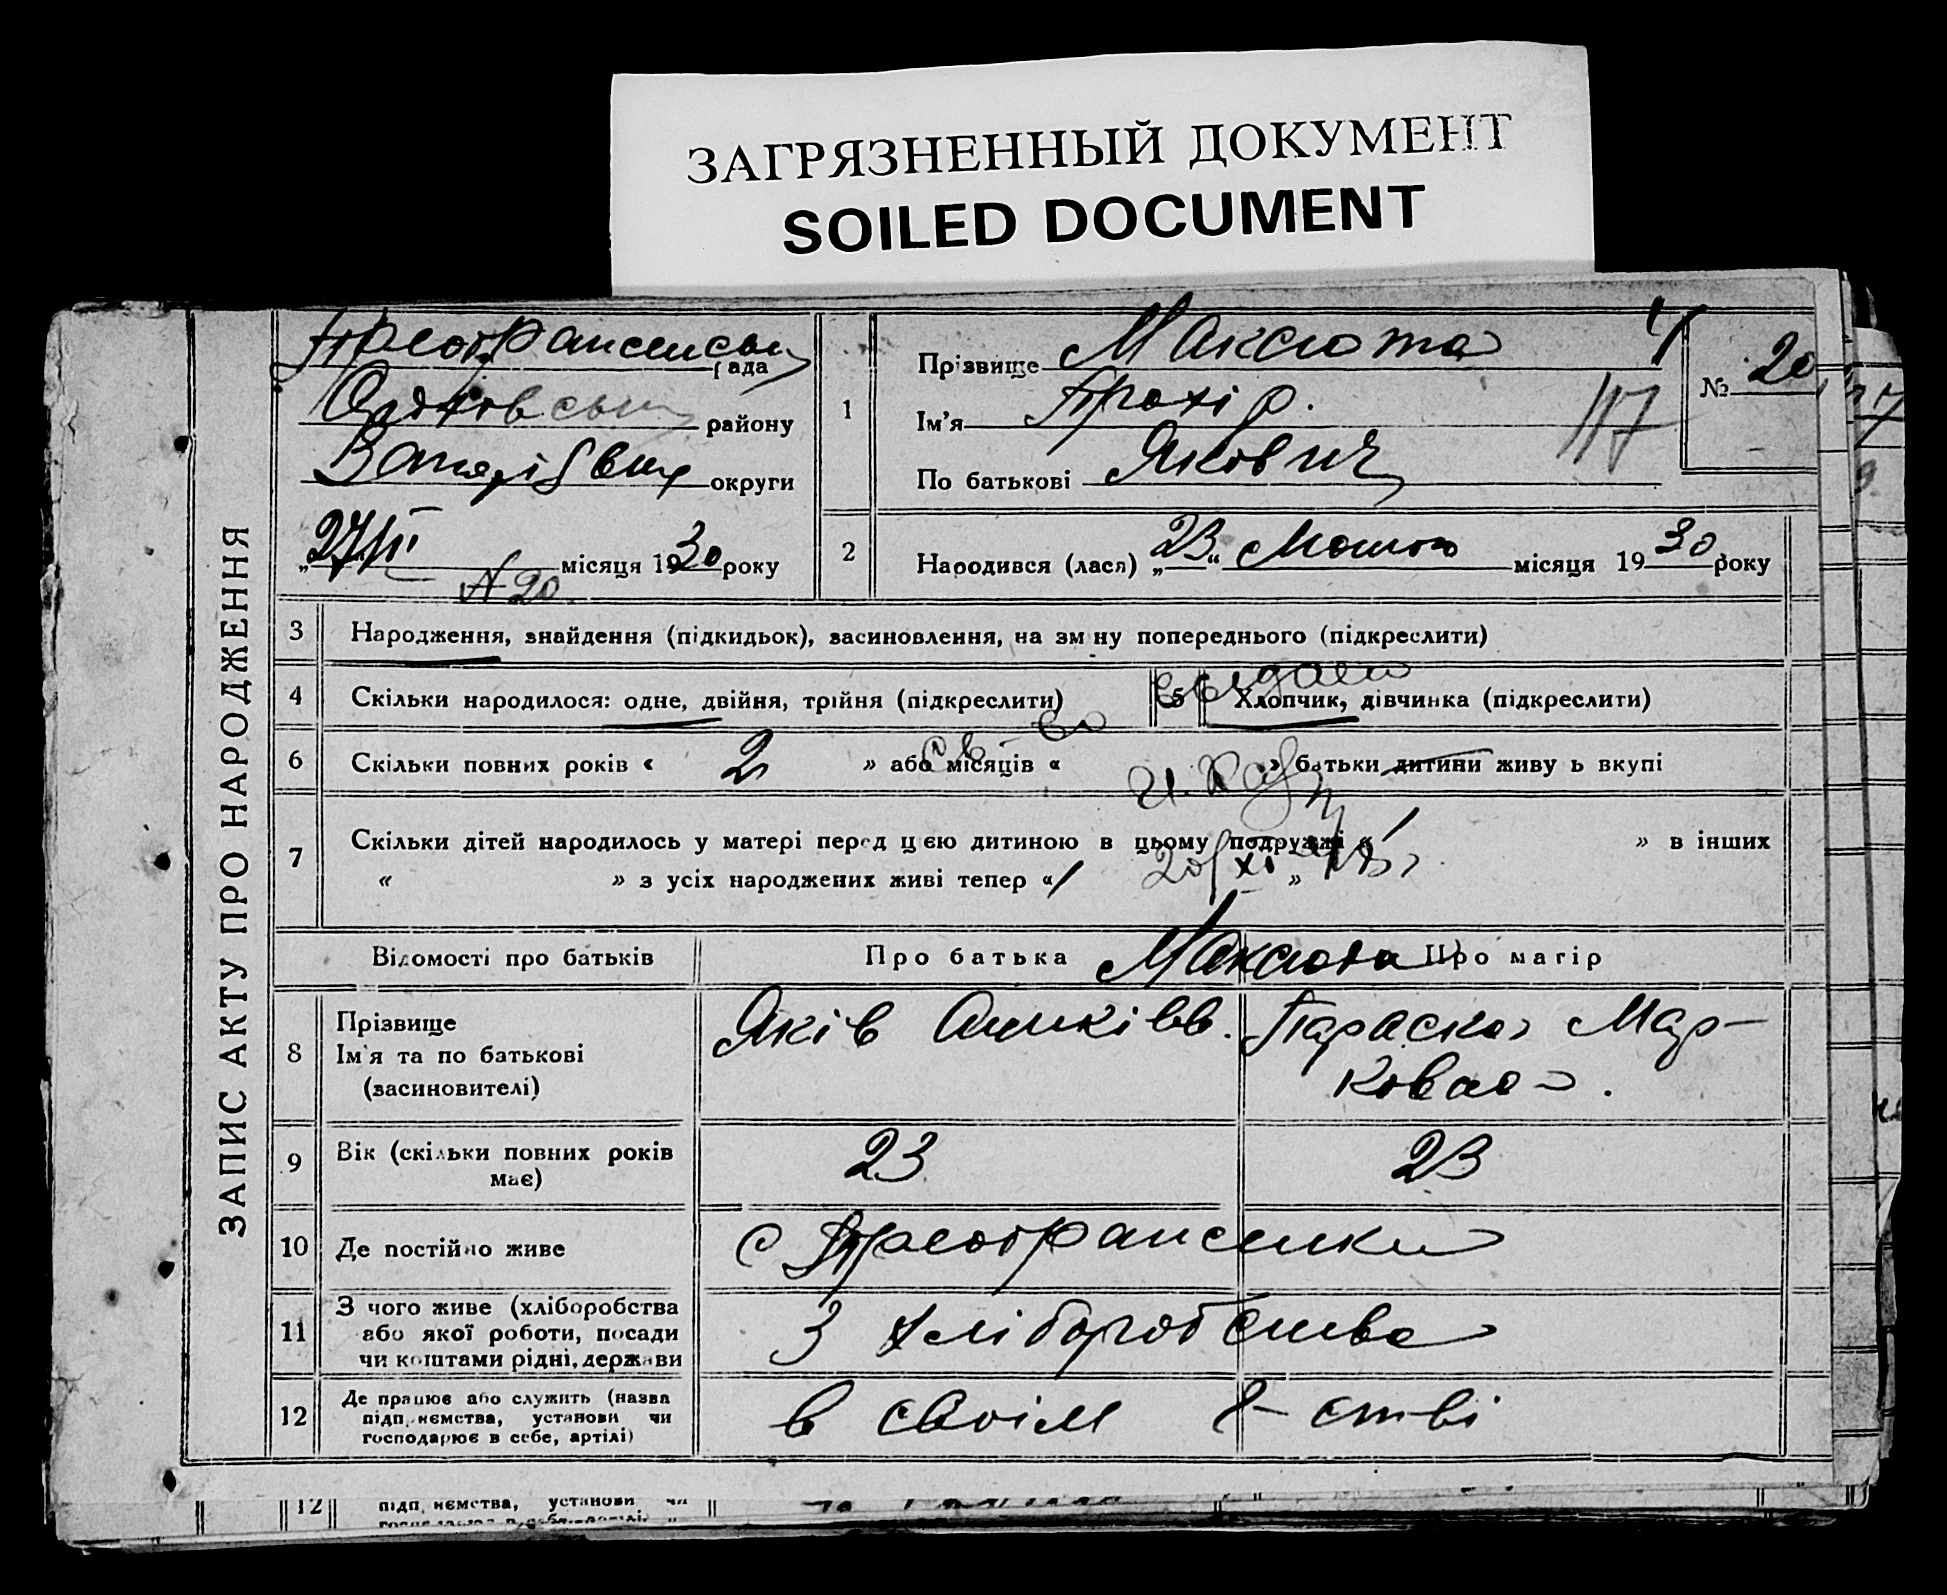 ЗАГРЯЗНЕННЫЙ ДОКУМЕНТ
SOILED DOCUMENT
ЗАПИС АКТУ ПРО НАРОДЖЕННЯ
рада
району
округи
27/III місяця 1930 року
N 20
1
Прізвище Максюта
Ім'я Прохір
По батькові Якович
117
№ 20
2 Народився (лася) „23“ Лютого місяця 1930 року
3 Народження, знайдення (підкидьок), засиновлення, на зміну попереднього (підкреслити)
4 Скільки народилося: одне, двійня, трійня (підкреслити)
5 Хлопчик, дівчинка (підкреслити)
выдано
св-во
6 Скільки повних років « 2 » або місяців « » батьки дитини живуть вкупі
7 Скільки дітей народилось у матері перед цією дитиною в цьому подружжі « 1 » в інших
« » з усіх народжених живі тепер « 1 »
20/XI
Відомості про батьків Про батька Про матір
Максюта
8 Прізвище
Ім'я та по батькові
(засиновителі)
Яків
Параска Мар-
ковна
9 Вік (скільки повних років
має)
23 23
10 Де постійно живе
с
11 З чого живе (хліборобства
або якої роботи, посади
чи коштами рідні, держави
З хліборобства
12 Де працює або служить (назва
підприємства, установи чи
господарює в себе, артілі)
в своім г-стві
12 підприємства, установи чи